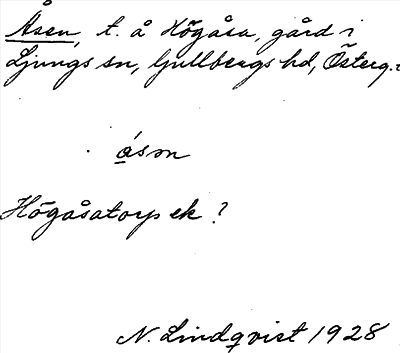 Åsen, t. å Högåsa, gård i
Ljungs sn, Gullbergs hd, Österg.
åsm
Högåsatorp ek ?
N. Lindqvist 1928